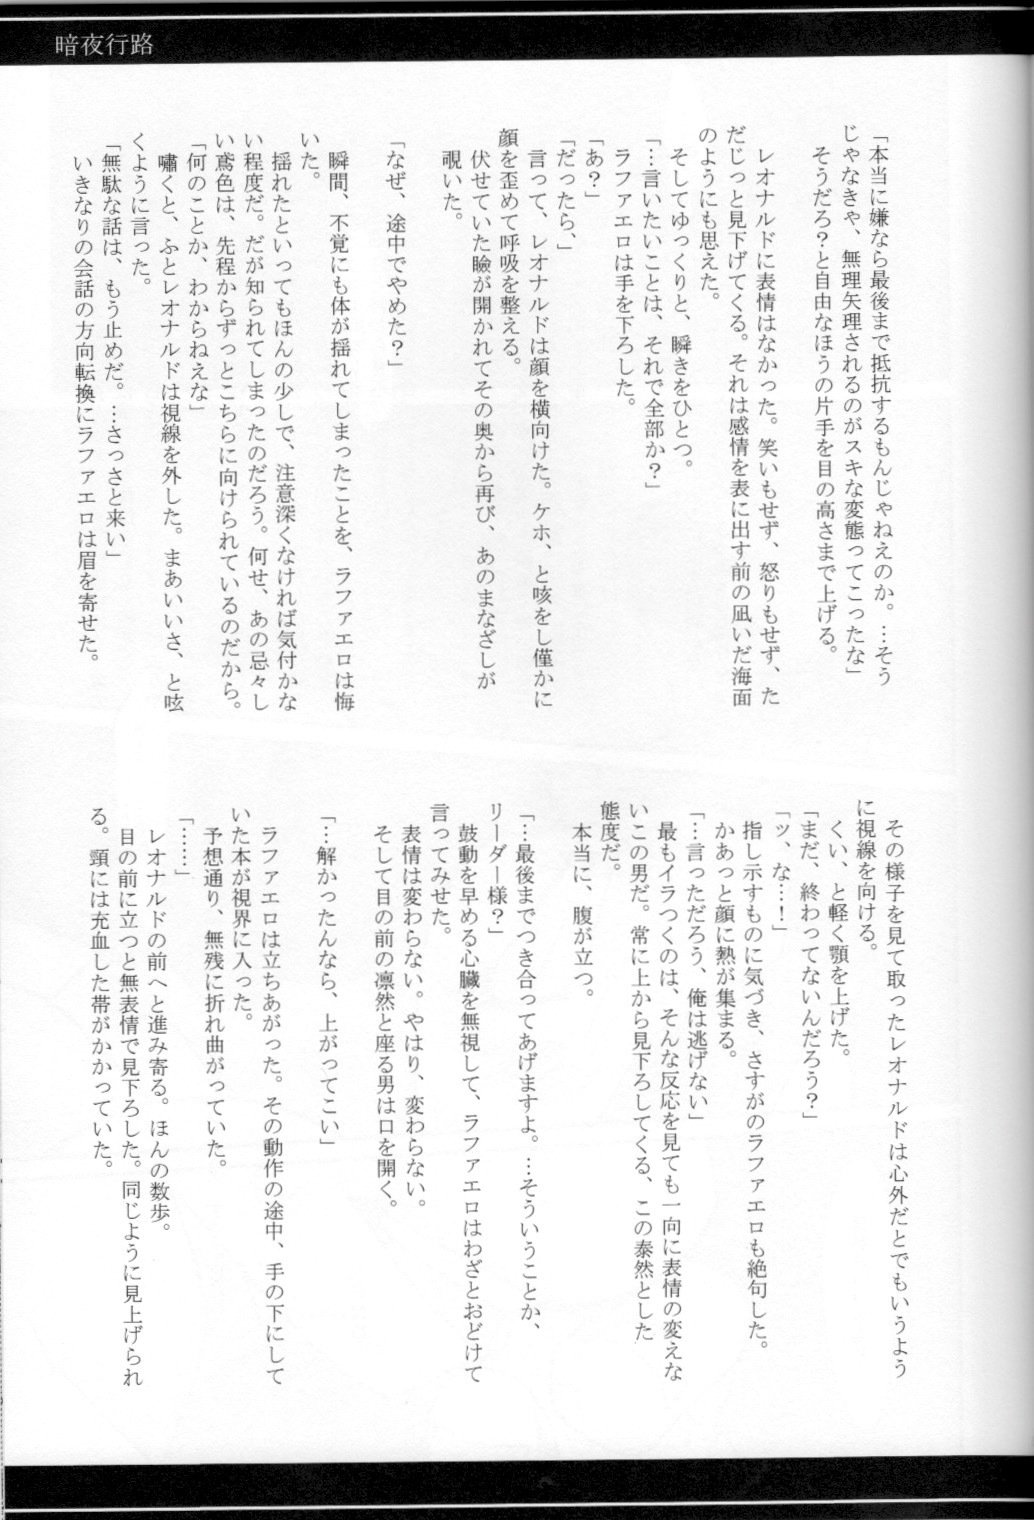 暗夜行路
「本当に嫌なら最後まで抵抗するもんじゃねえのか。…そう
じゃなきゃ、無理矢理されるのがスキな変態ってこったな」
そうだろ？と自由なほうの片手を目の高さまで上げる。
レオナルドに表情はなかった。笑いもせず、怒りもせず、た
だじっと見下げてくる。それは感情を表に出す前の凪いだ海面
のようにも思えた。
そしてゆっくりと、瞬きをひとつ。
「…言いたいことは、それで全部か？」
ラファエロは手を下ろした。
「あ？」
「だったら、」
言って、レオナルドは顔を横向けた。ケホ、と咳をし僅かに
顔を歪めて呼吸を整える。
伏せていた瞼が開かれてその奥から再び、あのまなざしが
覗いた。
「なぜ、途中でやめた？」
瞬間、不覚にも体が揺れてしまったことを、ラファエロは悔
いた。
揺れたといってもほんの少しで、注意深くなければ気付かな
い程度だ。だが知られてしまったのだろう。何せ、あの忌々し
い鳶色は、先程からずっとこちらに向けられているのだから。
「何のことか、わからねえな」
嘯くと、ふとレオナルドは視線を外した。まあいいさ、と呟
くように言った。
「無駄な話は、もう止めだ。…さっさと来い」
いきなりの会話の方向転換にラファエロは眉を寄せた。
その様子を見て取ったレオナルドは心外だとでもいうよう
に視線を向ける。
くい、と軽く顎を上げた。
「まだ、終わってないんだろう？」
「ッ、な…！」
指し示すものに気づき、さすがのラファエロも絶句した。
かあっと顔に熱が集まる。
「…言っただろう、俺は逃げない」
最もイラつくのは、そんな反応を見ても一向に表情の変えな
いこの男だ。常に上から見下ろしてくる、この泰然とした
態度だ。
本当に、腹が立つ。
「…最後までつき合ってあげますよ。…そういうことか、
リーダー様？」
鼓動を早める心臓を無視して、ラファエロはわざとおどけて
言ってみせた。
表情は変わらない。やはり、変わらない。
そして目の前の凛然と座る男は口を開く。
「…解かったんなら、上がってこい」
ラファエロは立ちあがった。その動作の途中、手の下にして
いた本が視界に入った。
予想通り、無残に折れ曲がっていた。
「……」
レオナルドの前へと進み寄る。ほんの数歩。
目の前に立つと無表情で見下ろした。同じように見上げられ
る。頸には充血した帯がかかっていた。